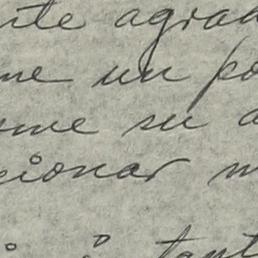 nte agrad
me un po
me su a
sionar m